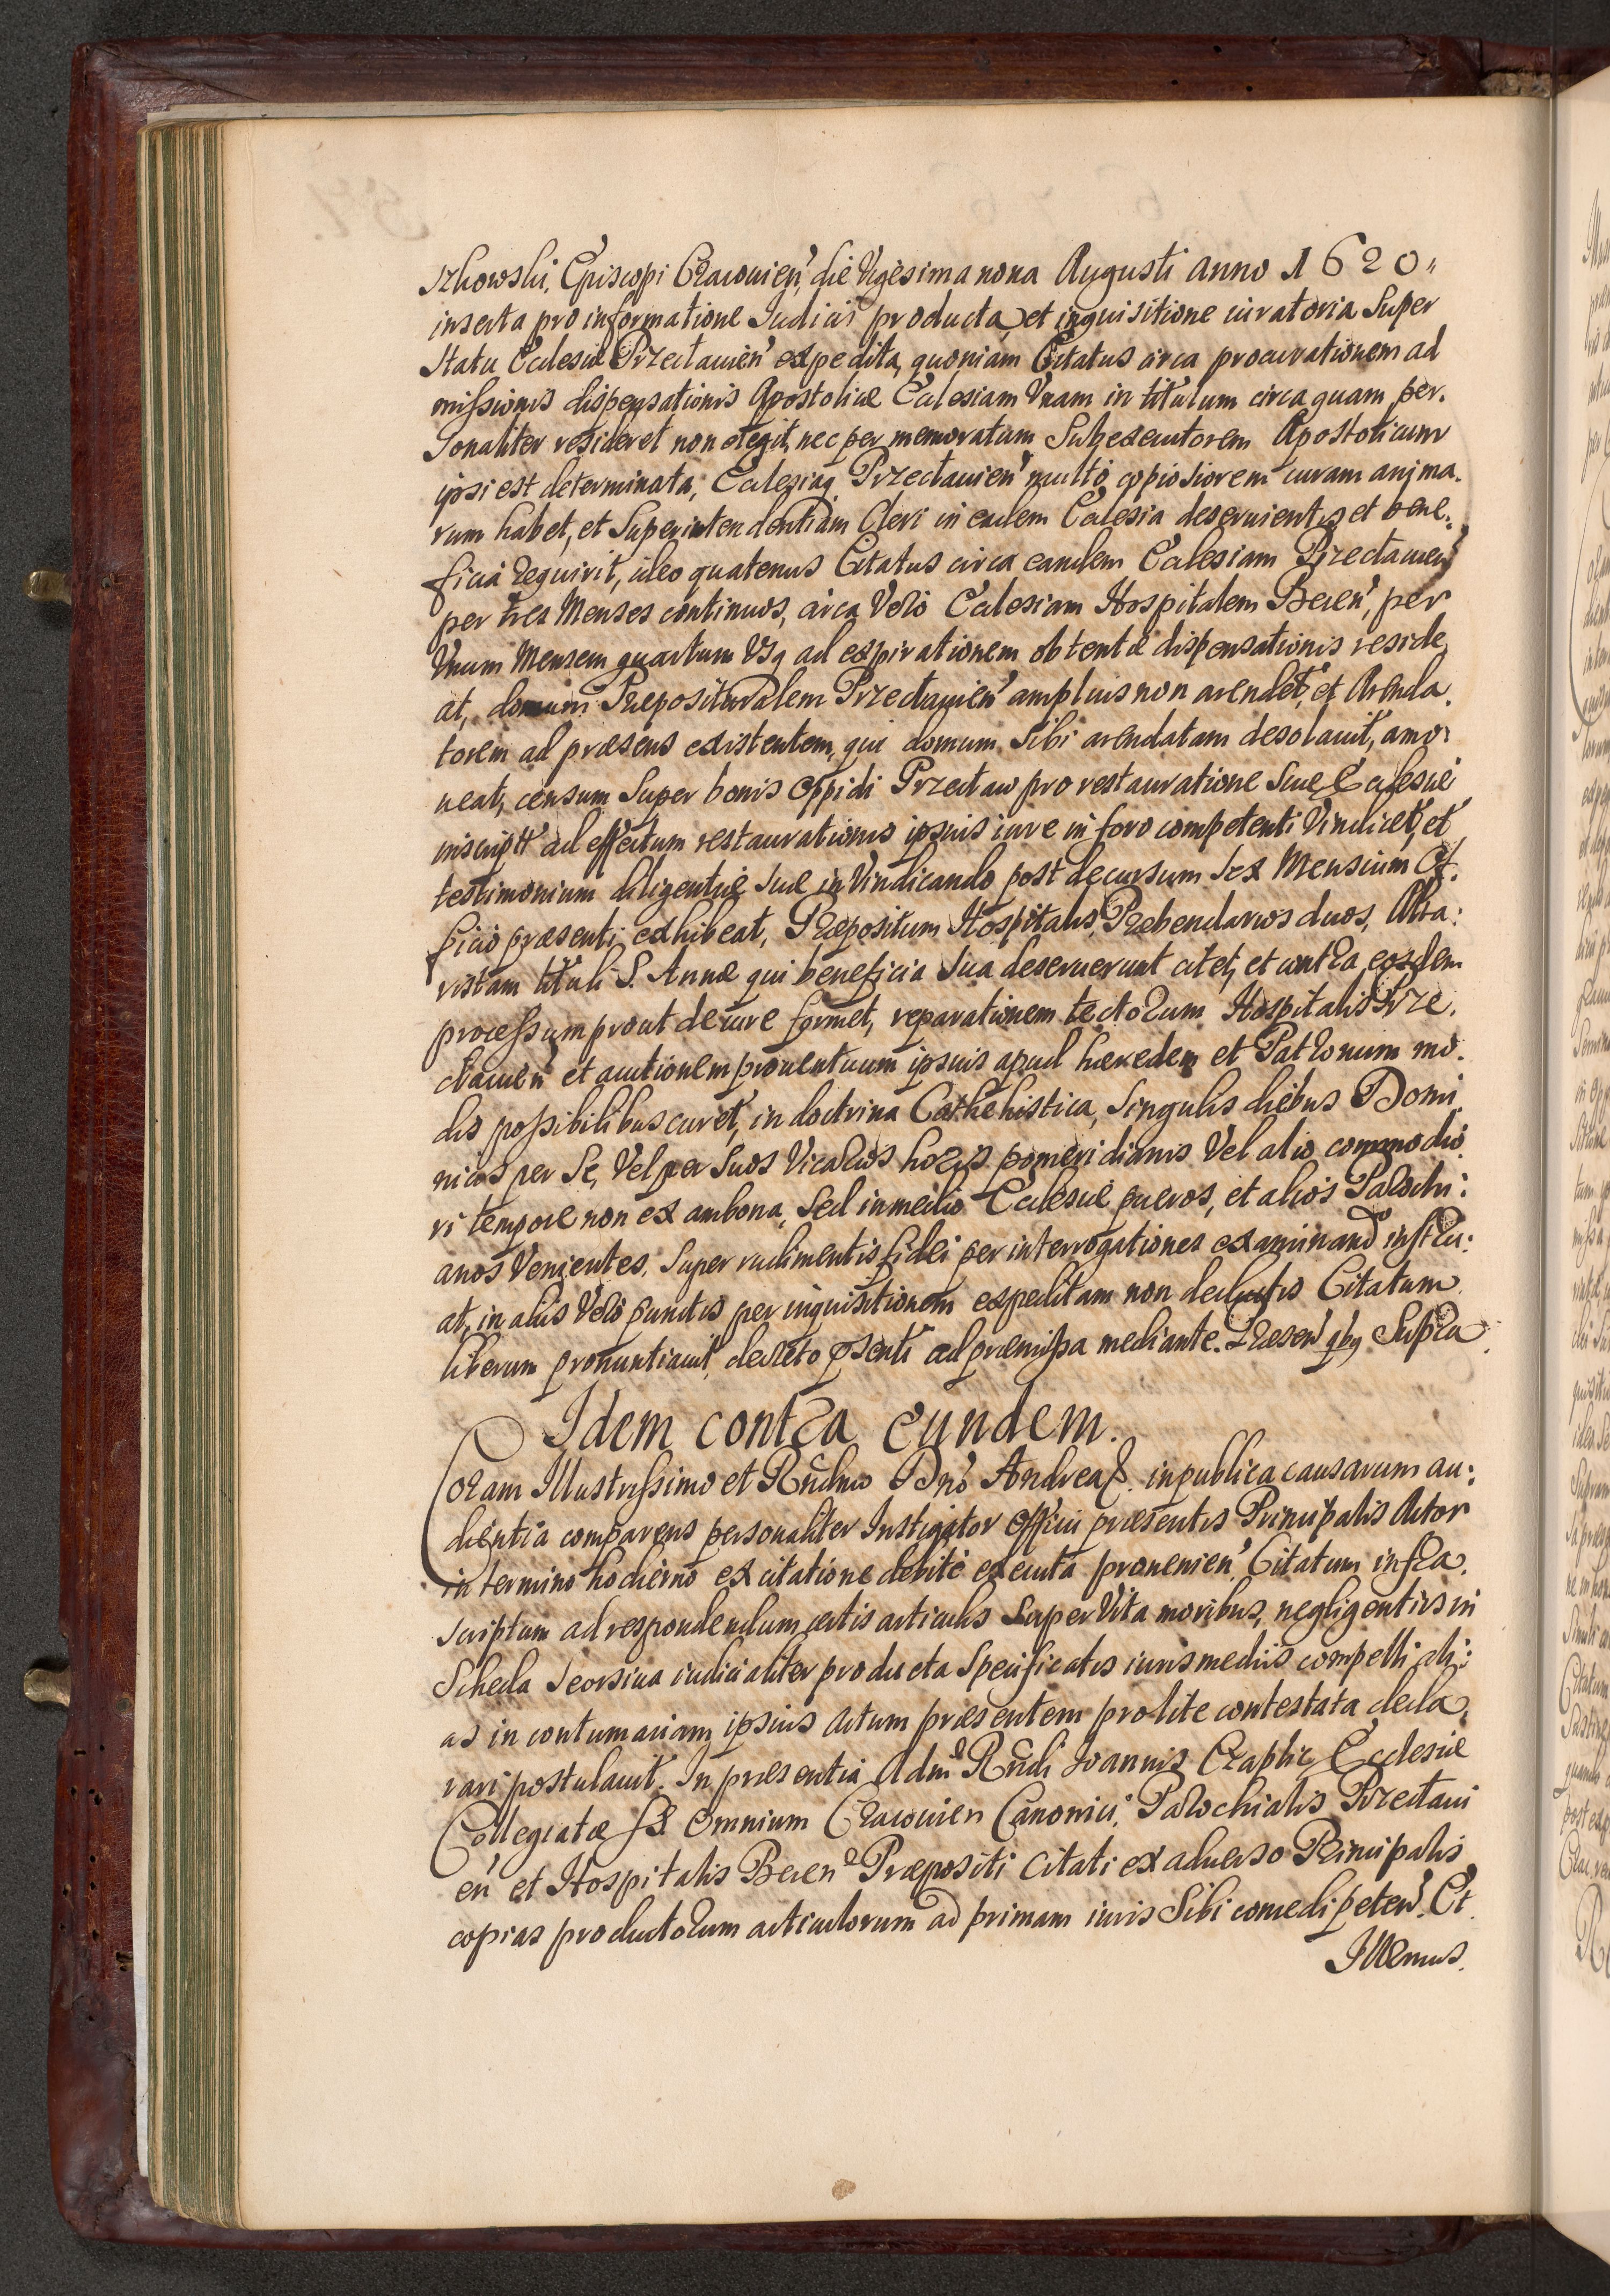 szkowski, Episcopi Cracouien', die Vigesima nona Augusti anno 1620,,
inserta pro informatione Iudicii producta, et inquisitione iuratoria Super
Statu Eclesiæ Przeclauien' expedita, quoniam Citatus circa procurationem ad
missionis dispensationis Apostolicæ Eclesiam Vnam in titulum circa quam per.
sonaliter resideret non elegit, nec per memoratum Subexecutorem Apostolicum
ipsi est determinata, Eclesiaq Przeclauien' multò copiosiorem curam anima.
rum habet, et Superintendentiam Cleri in eadem Eclesia deseruientis et bene:
ficia requirit, ideo quatenus Citatus circa eandem Eclesiam Przeclauien'
per tres Menses continuos, circa Verò Eclesiam Hospitalem Becen', per
Vnum Mensem quartum Vsq ad expirationem obtentæ dispensationis reside
at, domum Præposituralem Przeclauien' amplius non arendet, et Arenda.
torem ad præsens existentem, qui domum Sibi arendatam desolauit, amo:
ueat, censum Super bonis Oppidi Przeclaw pro restauratione Suæ Eclesiæ
inscript' ad effectum restaurationis ipsius iure in foro competenti Vindicet, et
testimonium diligentiæ Suæ in Vindicando post decursum Sex Mensium Of.
ficio præsenti exhibeat, Præpositum Hospitalis, Præbendarios duos, Alta:
ristam tituli S. Annæ qui beneficia Sua deseruerunt citet, et contra eosdem
processum prout de iure formet, reparationem tectorum Hospitalis Prze.
clauien' et auctionem prouentuum ipsius apud hæredem et Patronum mo.
dis possibilibus curet, in doctrina Cathehistica, Singulis diebus Domi
nicis per Se, Vel per Suos Vicarios horis pomeridianis Vel alio commodio.
ri tempore non ex ambona, Sed in medio Eclesiæ pueros, et alios Parochi:
anos Venientes, Super rudimentis fidei per interrogationes examinand' instru:
at, in aliis Verò punctis per inquisitionem expeditam non deductis Citatum
liberum pronuntiauit, decreto p͞senti ad præmissa mediante. Præsen' qby Supra
Idem contra eundem.
Coram Illustrissimo et R͞ndmo Dno' Andrea &. in publica causarum au:
dientia comparens personaliter Instigator Officii præsentis Principalis Actor
in termino hodierno ex citatione debitè executa prouenien', Citatum infra.
scriptum ad respondendum certis articulis Super Vita moribus, negligentiis in
Scheda Seorsiua iudicialiter producta Specificatis iuris mediis compelli ali:
as in contumaciam ipsius Actum præsentem pro lite contestata decla.
rari postulauit. In præsentia Adm R͞ndi Ioannis Craplic Ecclesiæ
Collegiatæ SS. Omnium Cracouien Canonici, Parochialis Przeclaui
en' et Hospitalis Becen' Præpositi Citati ex aduerso Principalis
copias productorum articulorum ad primam iuris Sibi concedi peten'. Et
Illrmus.